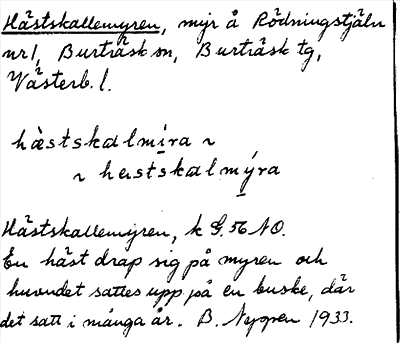 Hästskallemyren, myr å Rödningstjäln
nr 1, Burträsk sn, Burträsk tg,
Västerb. l.
hàstskalmíra ~
~ hastskalmýra
Hästskallemyren, k G. 56 NO.
En häst drap sig på myren och
huvudet sattes upp på en buske, där
det satt i många år. B. Neppen 1933.